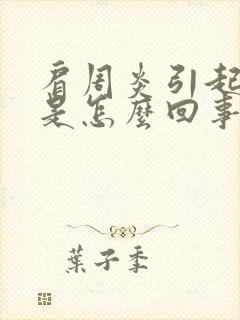 肩周炎引起
是怎麼回事
葉子季